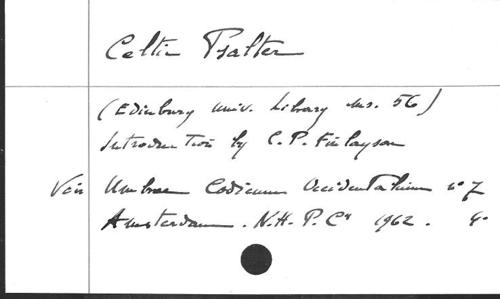 Celtic Psalter
(Edinburg Univ. Library Ms. 56)
Introduction by C.P. Finlayson
Voir Umbrae Codicum Occidentalium n° 7
Amsterdam. N.H.P.Cy 1962. 4°